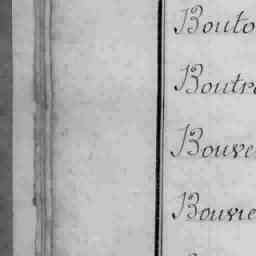 Bouto
Boutr
Bouve
Bouvie